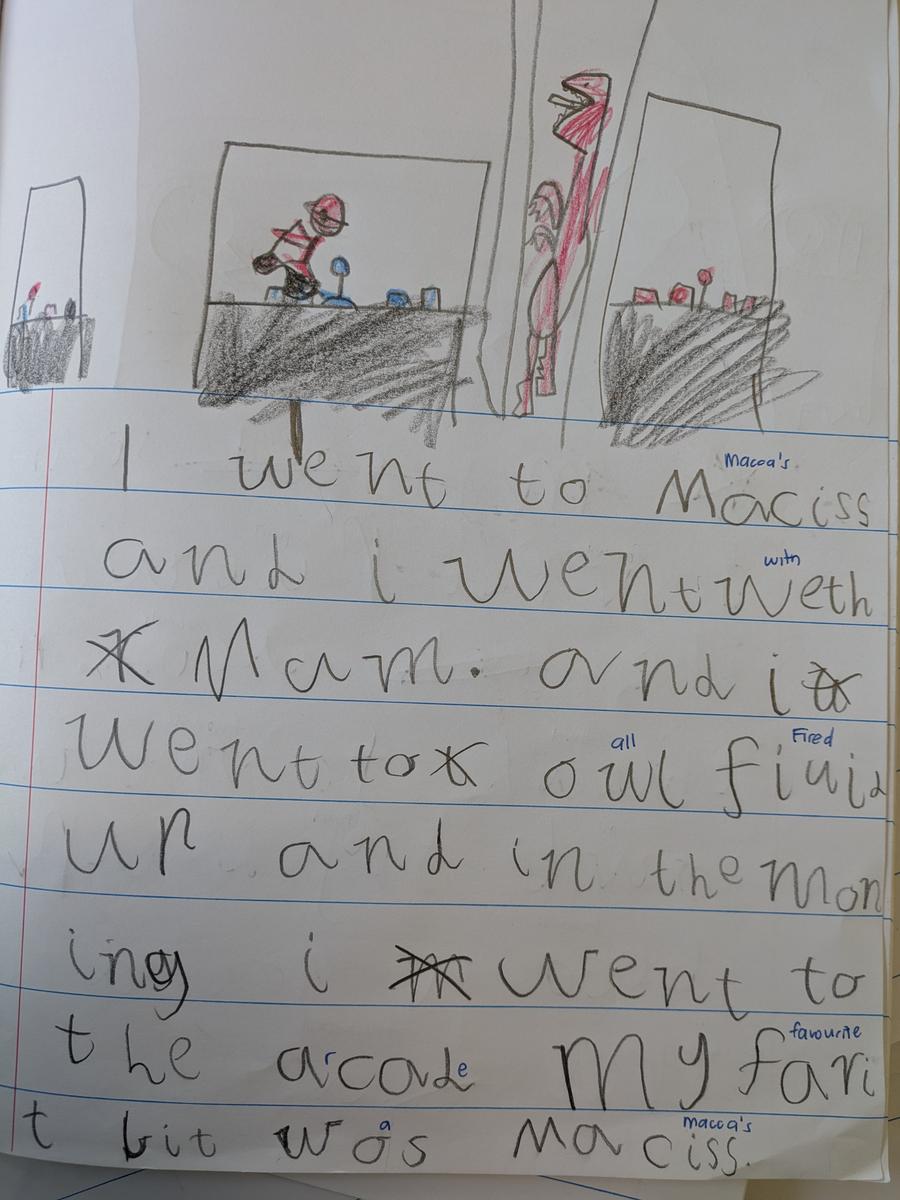 Macca's
I went to Maciss
with
and i went weth
Mam. and i
all Fired
went to owl fiuid
up and in the mon
ing i went to
favourite
the arcade My fari
a macca's
t bit was Maciss.